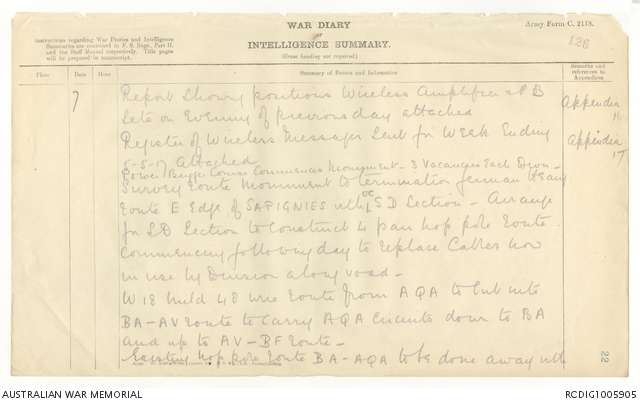 WAR DIARY
or
INTELLIGENCE SUMMARY.
(Erase heading not required.)
Army Form C. 2118.
126
Instructions regarding War Diaries and Intelligence
Summaries are contained in F. S. Regs., Part II.
and the Staff Manual respectively. Title pages
will be prepared in manuscript.
Place Date Hour Summary of Events and Information Remarks and references to Appendices
7 Report showing positions Wireless Amplifier & P B
Sets on Evening of previous day attached Appendix 16
Register of Wireless Messages Sent for Week Ending Appendix 17
5-5-17 Attached
Power Buzzer Corps Commences Monument - 3 Vacancies Each Divn -
Survey route Monument to termination german heavy
route E Edge of SAPIGNIES with OC 5 D Section - Arrange
for 5 D Section to Construct 4 pair hop pole route
Commencing following day to replace Cables now
in use by Division along road -
W 18 build 48 wire route from AQA to Cut into
BA-AV route to Carry AQA Circuits down to BA
and up to AV-BF route -
Existing hop pole route BA-AQA to be done away with
22
AUSTRALIAN WAR MEMORIAL
RCDIG1005905